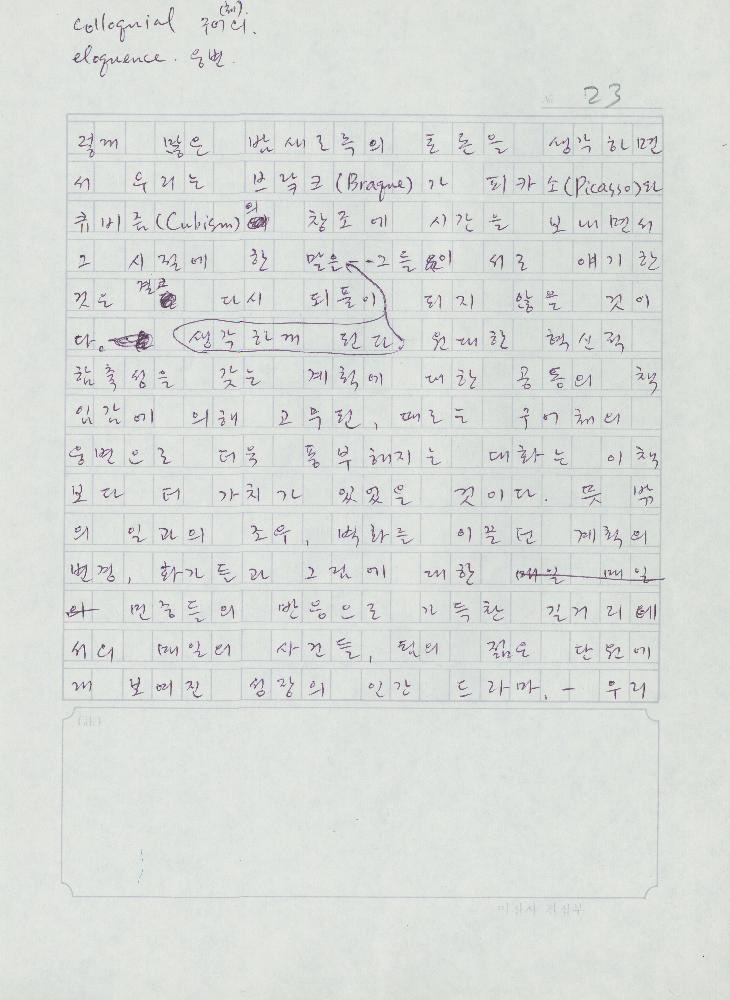 colloquial 구어의(체).
eloquence. 웅변.
No. 23
렇게 많은 밤새도록의 토론을 생각하면
서 우리는 브락크(Braque)가 피카소(Picasso)와
큐비즘(Cubism)의 창조에 시간을 보내면서
그 시절에 한 말은--그들이 서로 얘기한
것은 결코 다시 되풀이 되지 않을 것이
다. 생각하게 된다. 원대한 혁신적
함축성을 갖는 계획에 대한 공통의 책
임감에 의해 고무된, 때로는 구어체의
웅변으로 더욱 풍부해지는 대화는 이 책
보다 더 가치가 있었을 것이다. 뜻 밖
의 일과의 조우, 벽화를 이끌던 계획의
변경, 화가들과 그림에 대한 매일 매일
의 민중들의 반응으로 가득찬 길거리에
서의 매일의 사건들, 팀의 젊은 단원에
게 보여진 성장의 인간 드라마, - 우리